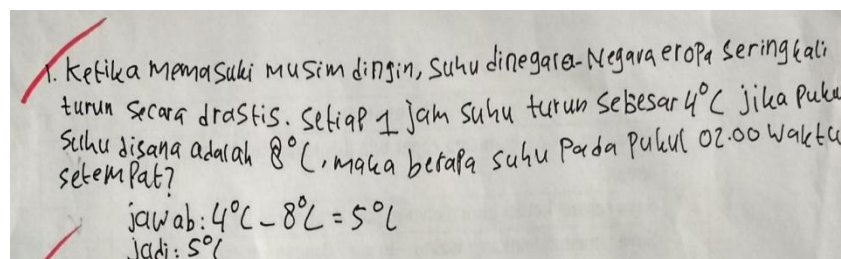 1. Ketika memasuki musim dingin, suhu dinegara-Negara eropa seringkali
turun secara drastis. setiap 1 jam suhu turun sebesar 4°C jika
suhu disana adalah 8°C, maka berapa suhu pada pukul 02.00 waktu
setempat?
jawab: 4°C - 8°C = 5°C
jadi: 5°C